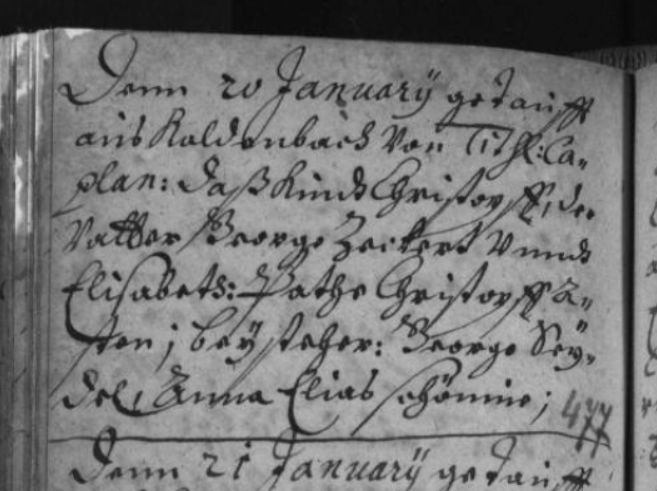 Denn 20 January getaufft
aus Kaldenbach von Titl: Ca-
plan: daß Kindt Christoff, der
Vatter George Zeikert unndt
Elisabeth: Pathe Christoff A-
sten; beÿsteher: George Seÿ-
del, Anna Elias schönin;
477
Denn 21 January getaufft